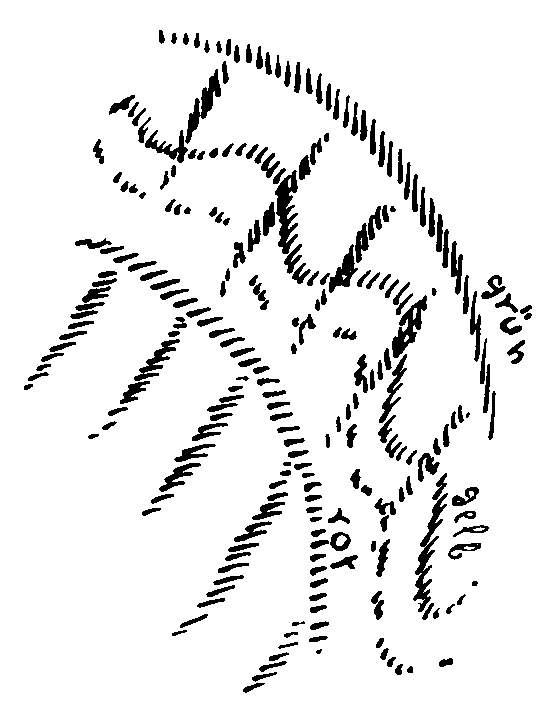 grün
gelb
rot